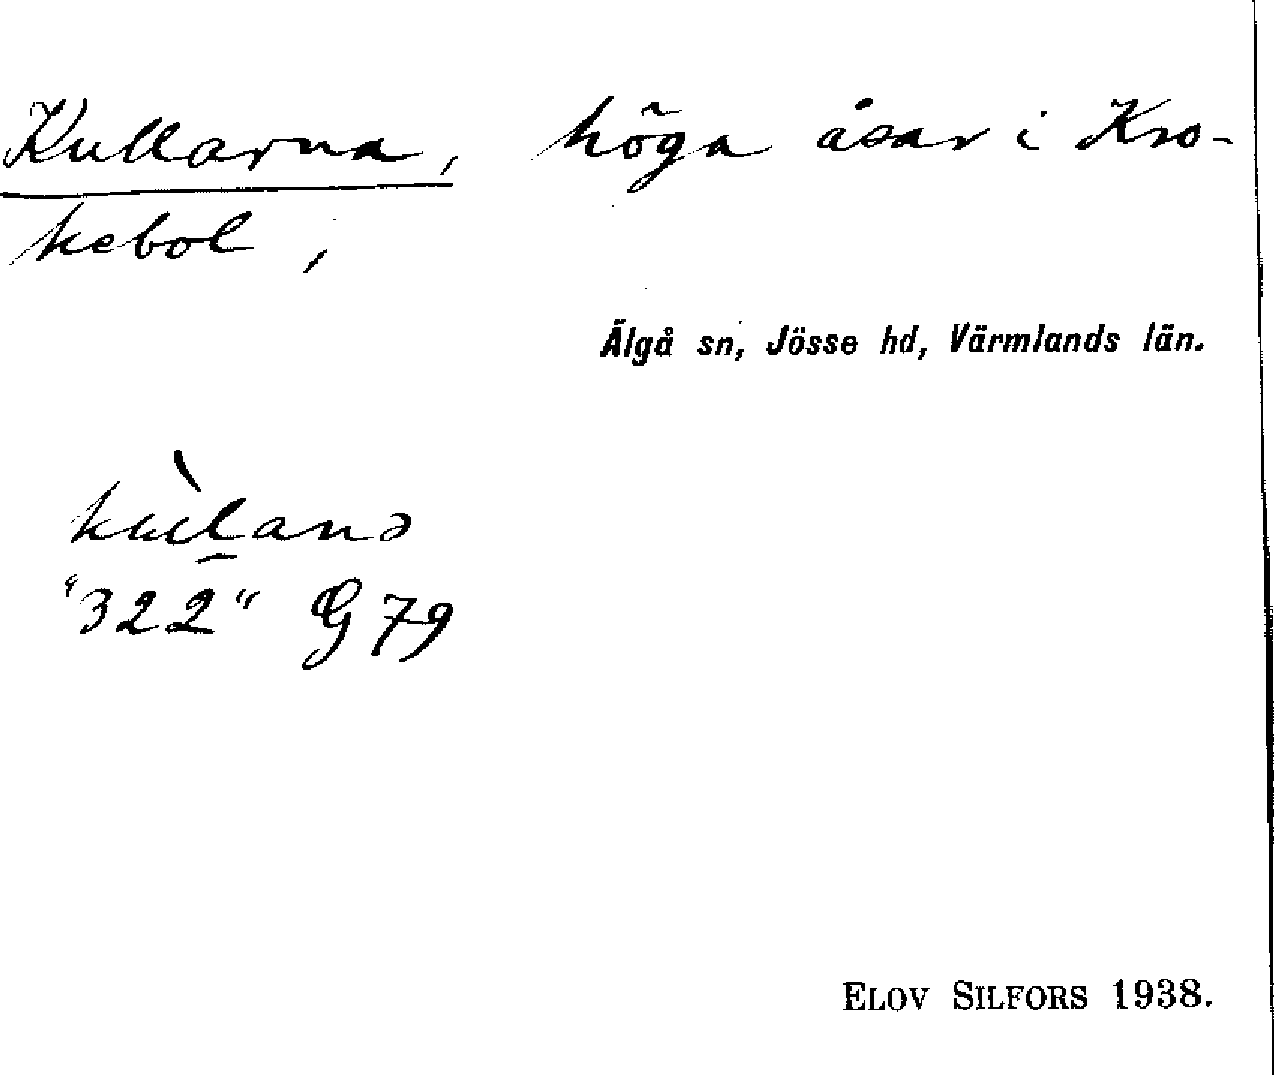 Kullarna, höga åsar i Kro-
kebol,
Älgå sn, Jösse hd, Värmlands län.
kùl̠anə
"322" G 79
ELOV SILFORS 1938.